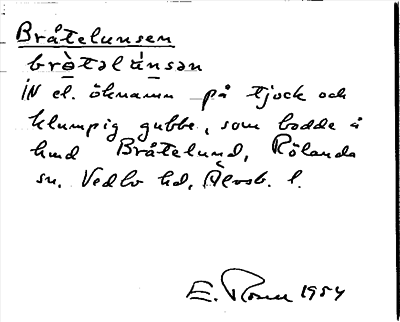 Bråtelunsen
bròtəlúnsən
IN el. öknamn på tjock och
klumpig gubbe, som bodde å
hmd Bråtelund, Rölanda
sn. Vedbo hd, Älvsb. l.
E. Rosén 1954